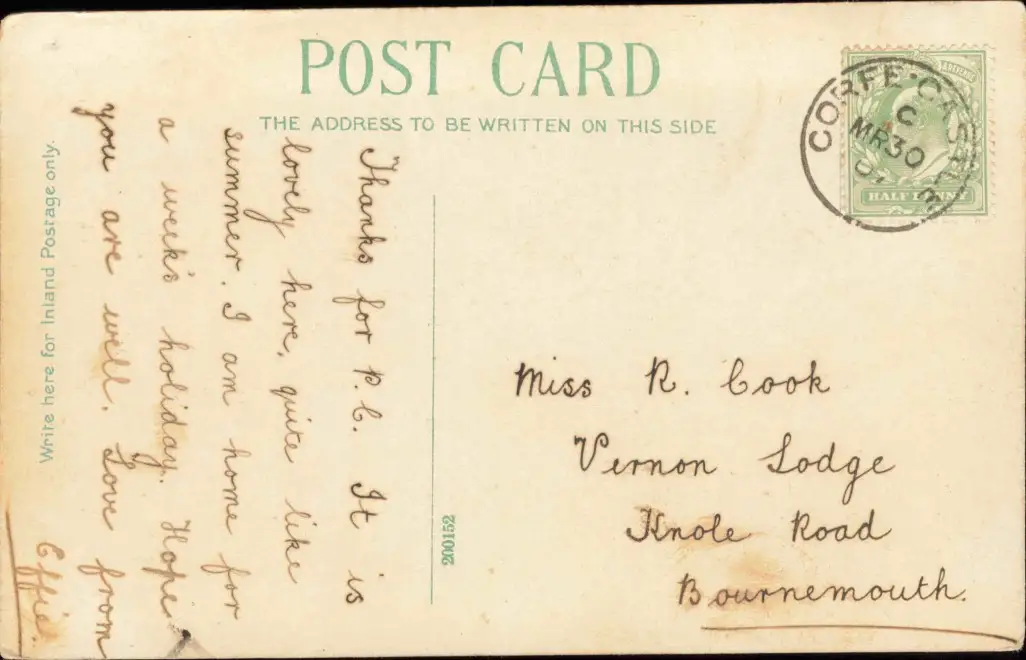 POST CARD
THE ADDRESS TO BE WRITTEN ON THIS SIDE
Write here for Inland Postage only.
Thanks for P.C. It is
lovely here, quite like
summer. I am home for
a week's holiday. Hope
you are well. Love from
Effie.
200152
CORFE·CASTLE
C
MR30
07
HALF PENNY
Miss R. Cook
Vernon Lodge
Knole Road
Bournemouth.